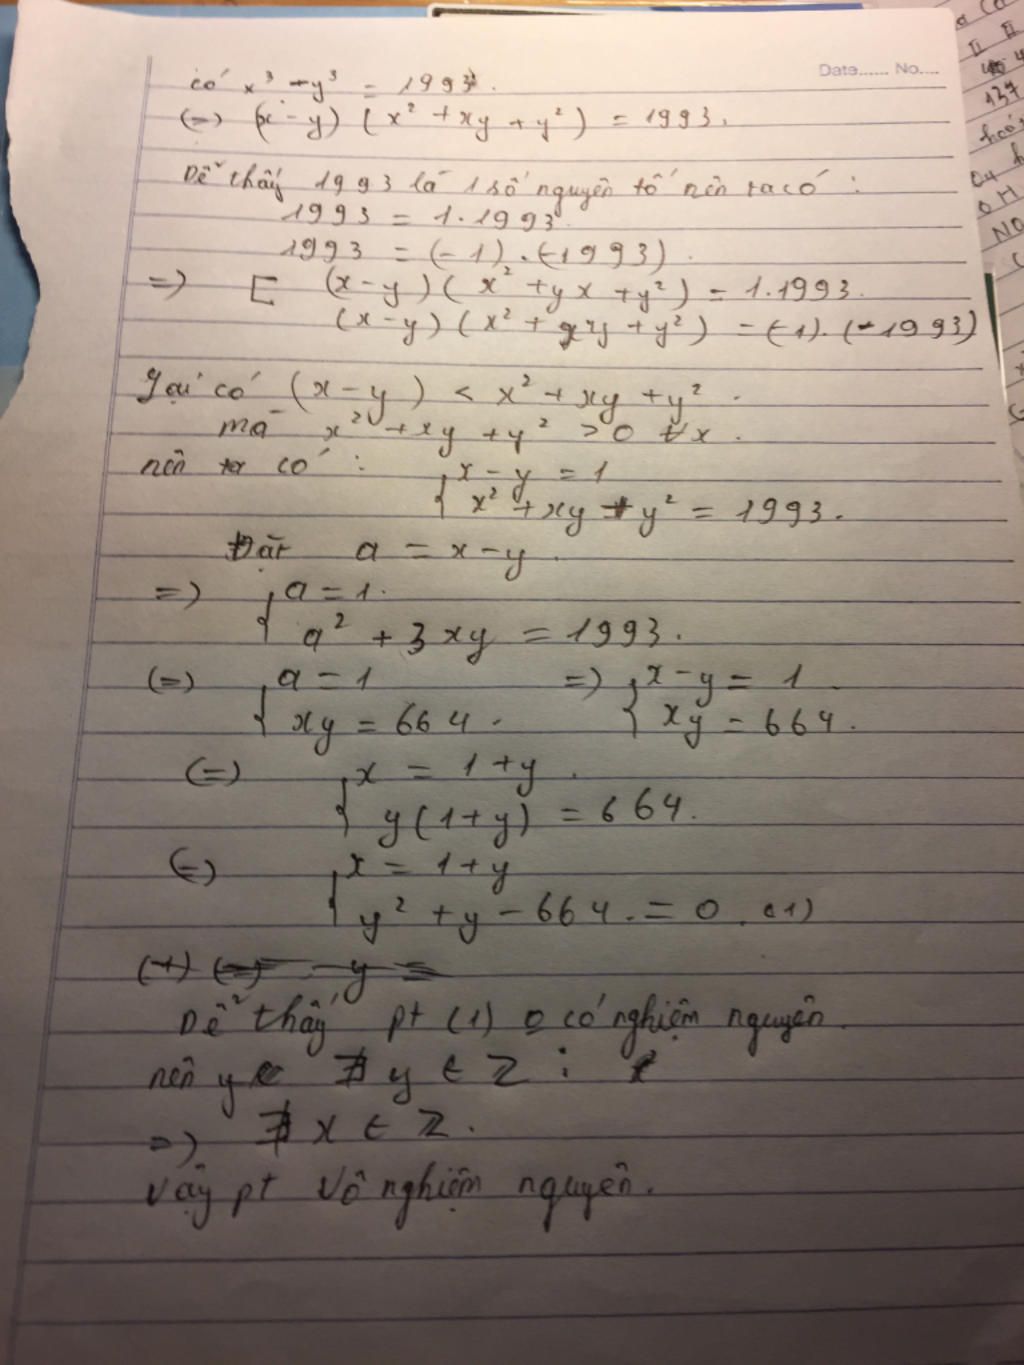 Date...... No....
có x³ - y³ = 1993.
(=) (x - y) (x² + xy + y²) = 1993.
Dễ thấy 1993 là 1 số nguyên tố nên ta có :
1993 = 1.1993
1993 = (-1).(-1993).
=) [ (x-y)(x² + yx + y²) = 1.1993.
(x-y)(x² + xy + y²) = (-1).(-1993)
Lại có (x-y) < x² + xy + y².
mà x² + xy + y² > 0 ∀x.
nên ta có : { x - y = 1
x² + xy + y² = 1993.
Đặt a = x - y.
=) { a = 1.
a² + 3xy = 1993.
(=) { a = 1 =) { x - y = 1
xy = 664. xy = 664.
(=) { x = 1 + y.
y(1+y) = 664.
(=) { x = 1 + y
y² + y - 664. = 0. (1)
(+)
Dễ thấy pt (1) 0 có nghiệm nguyên.
nên ∄ y ∈ Z ;
=) ∄ x ∈ Z.
Vậy pt vô nghiệm nguyên.
137
NO